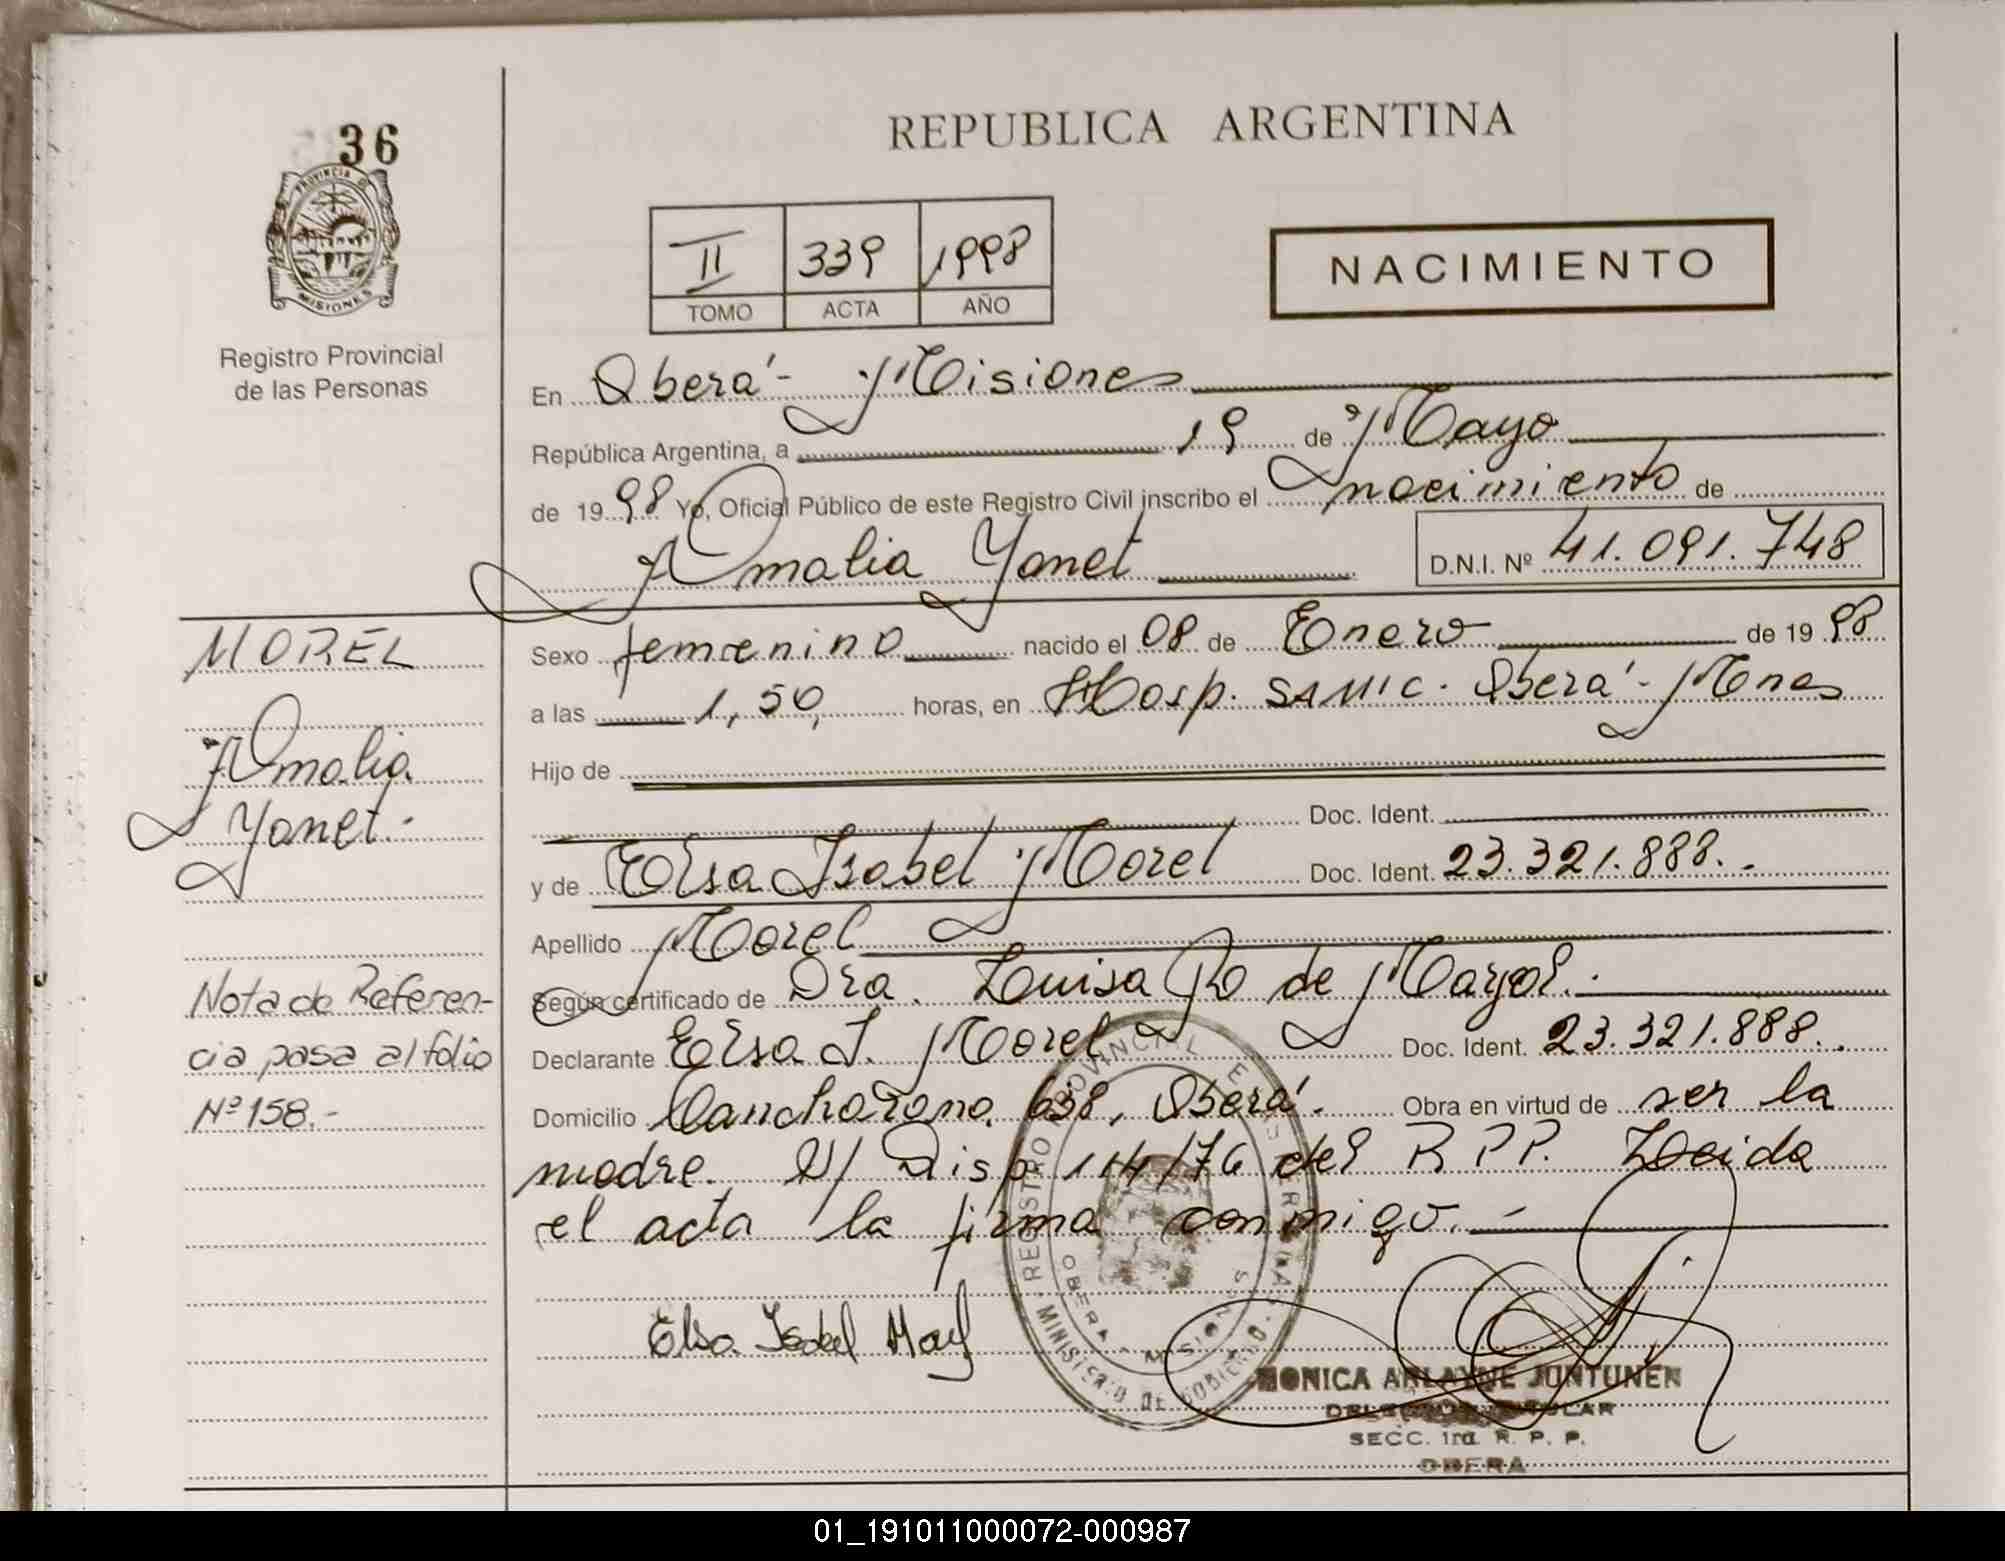 36
PROVINCIA DE
MISIONES
Registro Provincial
de las Personas
REPUBLICA ARGENTINA
II 339 1998
TOMO ACTA AÑO
NACIMIENTO
En Oberá - Misiones
República Argentina, a 19 de Mayo
de 1998 Yo, Oficial Público de este Registro Civil inscribo el nacimiento de
Amalia Yanet D.N.I. Nº 41.091.748
MOREL
Amalia
Yanet.-
Nota de Referen-
cia pasa al folio
Nº 158.-
Sexo femenino nacido el 08 de Enero de 1998
a las 1,50, horas, en Hosp. SAMIC. Oberá - Mnes
Hijo de
Doc. Ident.
y de Elsa Isabel Morel Doc. Ident. 23.321.888.-
Apellido Morel
Según certificado de Dra. Luisa Ro de Mayol.-
Declarante Elsa I. Morel Doc. Ident. 23.321.888.-
Domicilio 638, Oberá. Obra en virtud de ser la
madre. Disp. 114/76 del R.P.P. Leida
el acta la firma conmigo.-
Elsa Isabel
REGISTRO PROVINCIAL DE LAS PERSONAS
OBERA - MISIONES
MINISTERIO DE GOBIERNO
MONICA ARLAYNE JUNTUNEN
DELEGADO TITULAR
SECC. 1ra. R. P. P.
OBERA
01_191011000072-000987